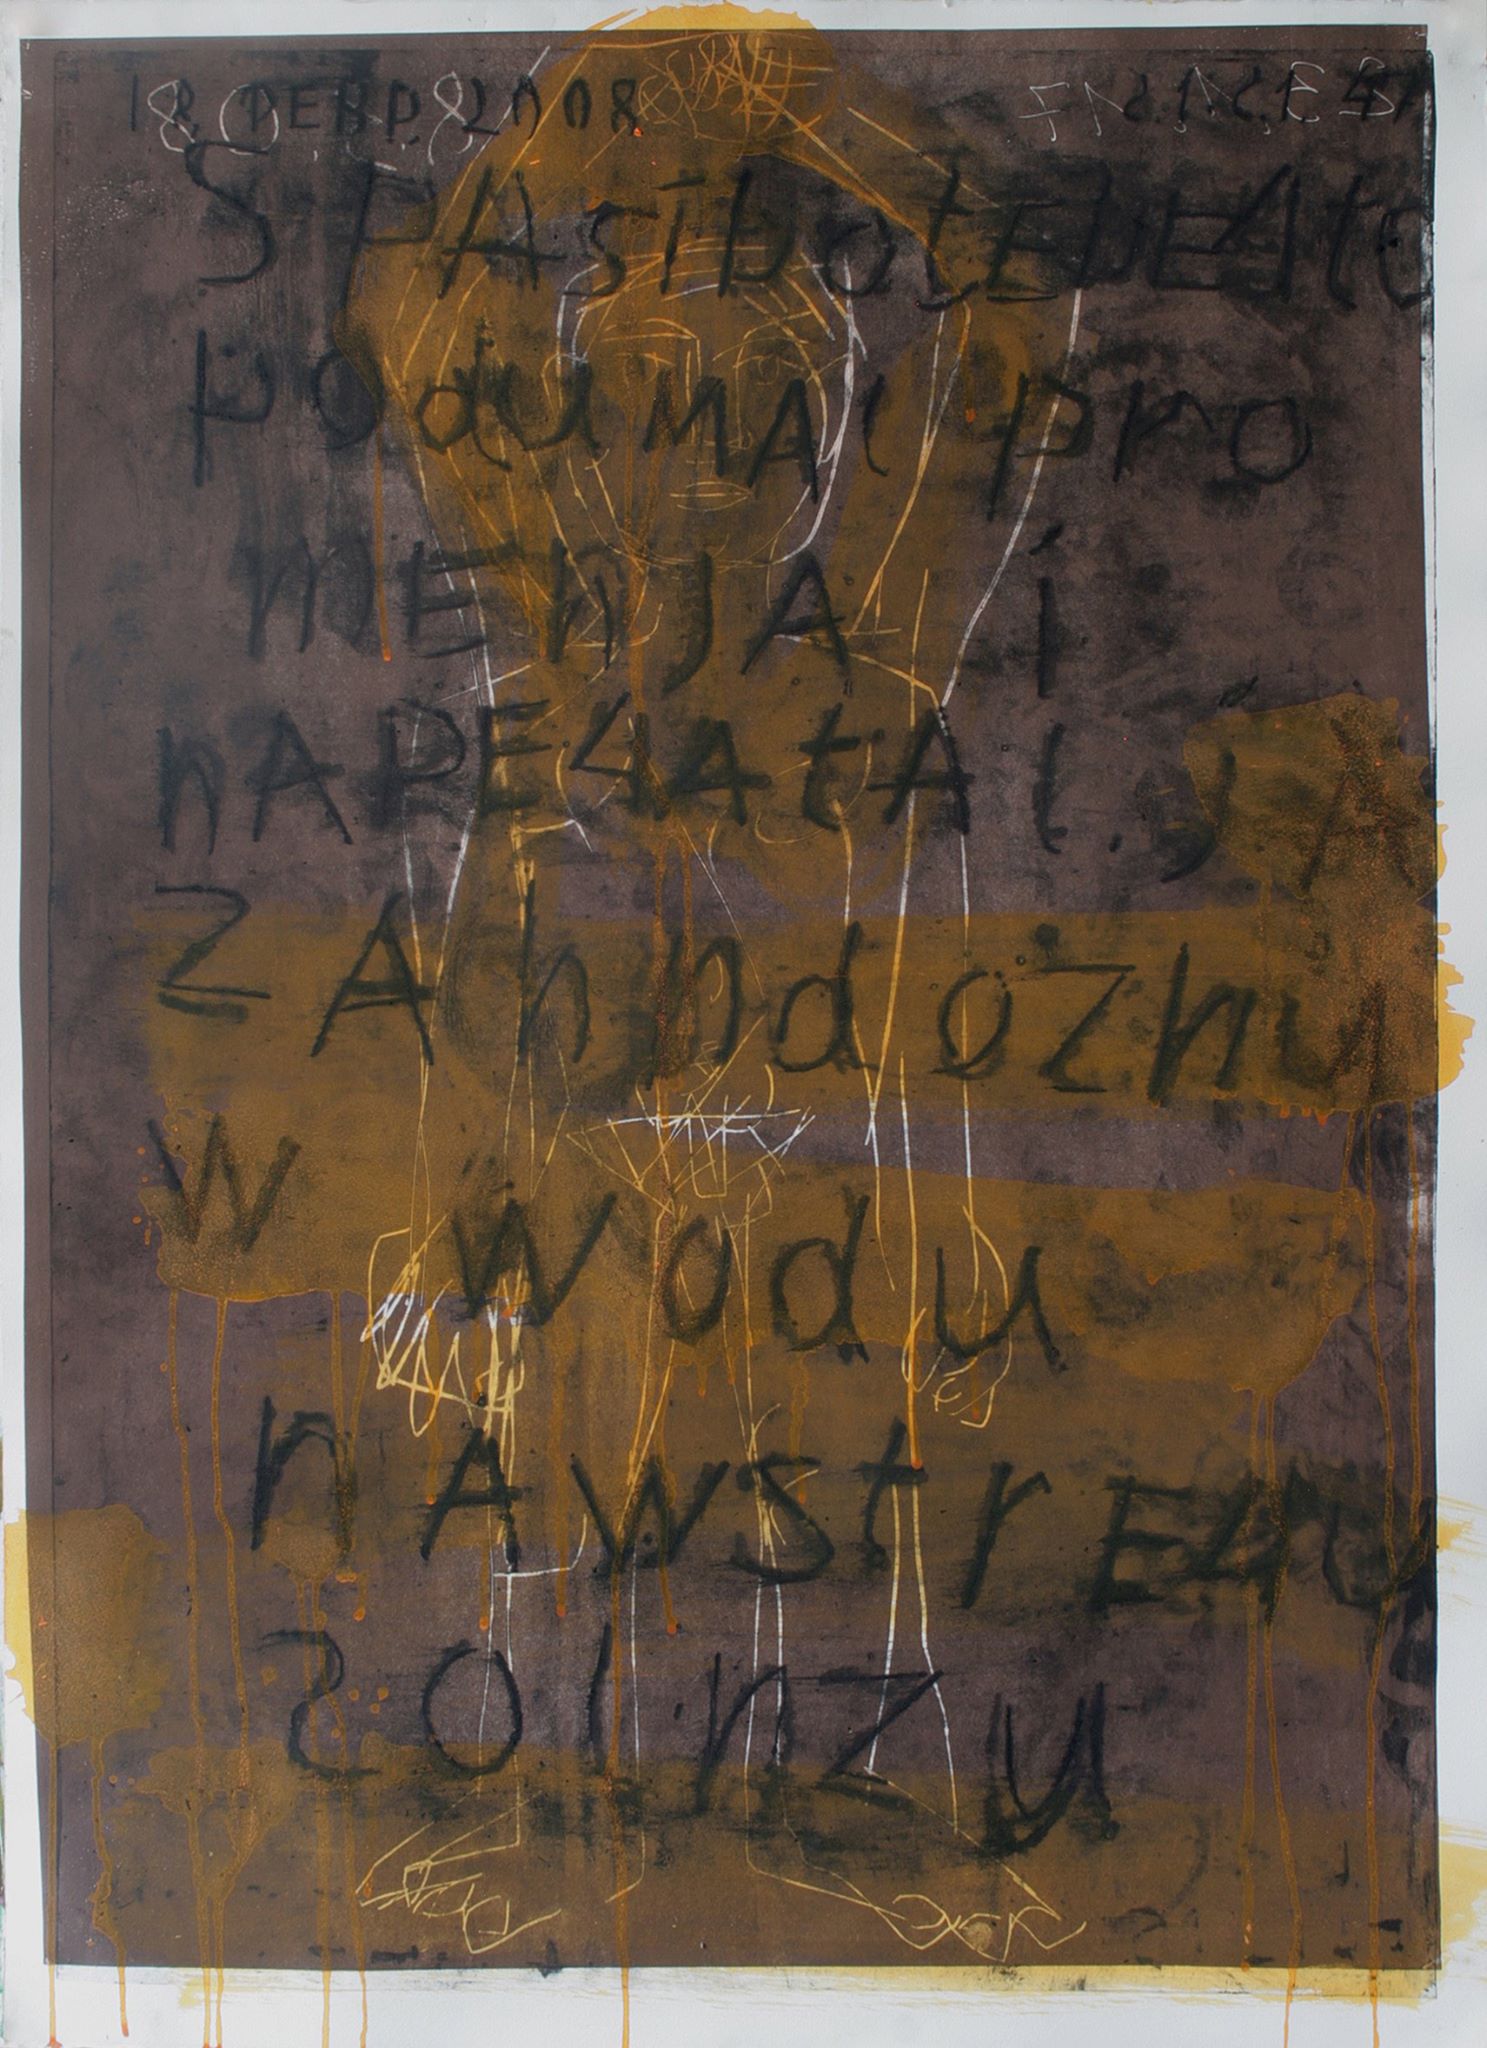 18 ФЕВР. 2008
SPASIbotEbEЧto
podumAl pro
mEnjA i
nAPEЧAtAl. jA
ZAhndozhu
w wodu
nAwstrEЧu
solnzu